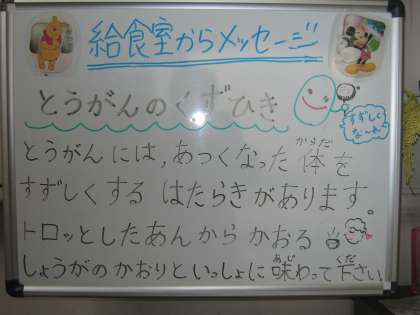 給食室からメッセージ
とうがんのくずひき
すずしく
な〜れ
とうがんには,あつくなった体を
からだ
すずしくする はたらきがあります
トロッとしたあんから かおる
しょうがのかおりといっしょに味わって下さい
あじ
くだ